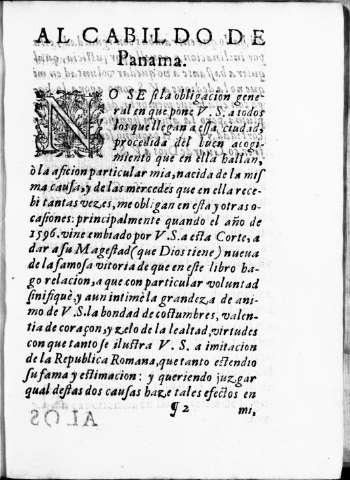 AL CABILDO DE
Panama.
NO SE si la obligacion gene
ral en que pone V. S. a todos
los que llegan a essa ciudad,
procedida del buen acogi
miento que en ella hallan,
ò la aficion particular mia, nacida de la mis
ma causa, y de las mercedes que en ella rece
bi tantas vezes, me obligan en esta y otras o
casiones: principalmente quando el año de
1596. vine embiado por V. S. a esta Corte, a
dar a su Magestad (que Dios tiene) nueua
de la famosa vitoria de que en este libro ha
go relacion, a que con particular voluntad
sinifiquè, y aun intimè la grandeza de ani
mo de V. S. la bondad de costumbres, valen
tia de coraçon, y zelo de la lealtad, virtudes
con que tanto se ilustra V. S. a imitacion
de la Republica Romana, que tanto estendio
su fama y estimacion: y queriendo juzgar
qual destas dos causas haze tales efectos en
¶ 2 mi,
ALOS